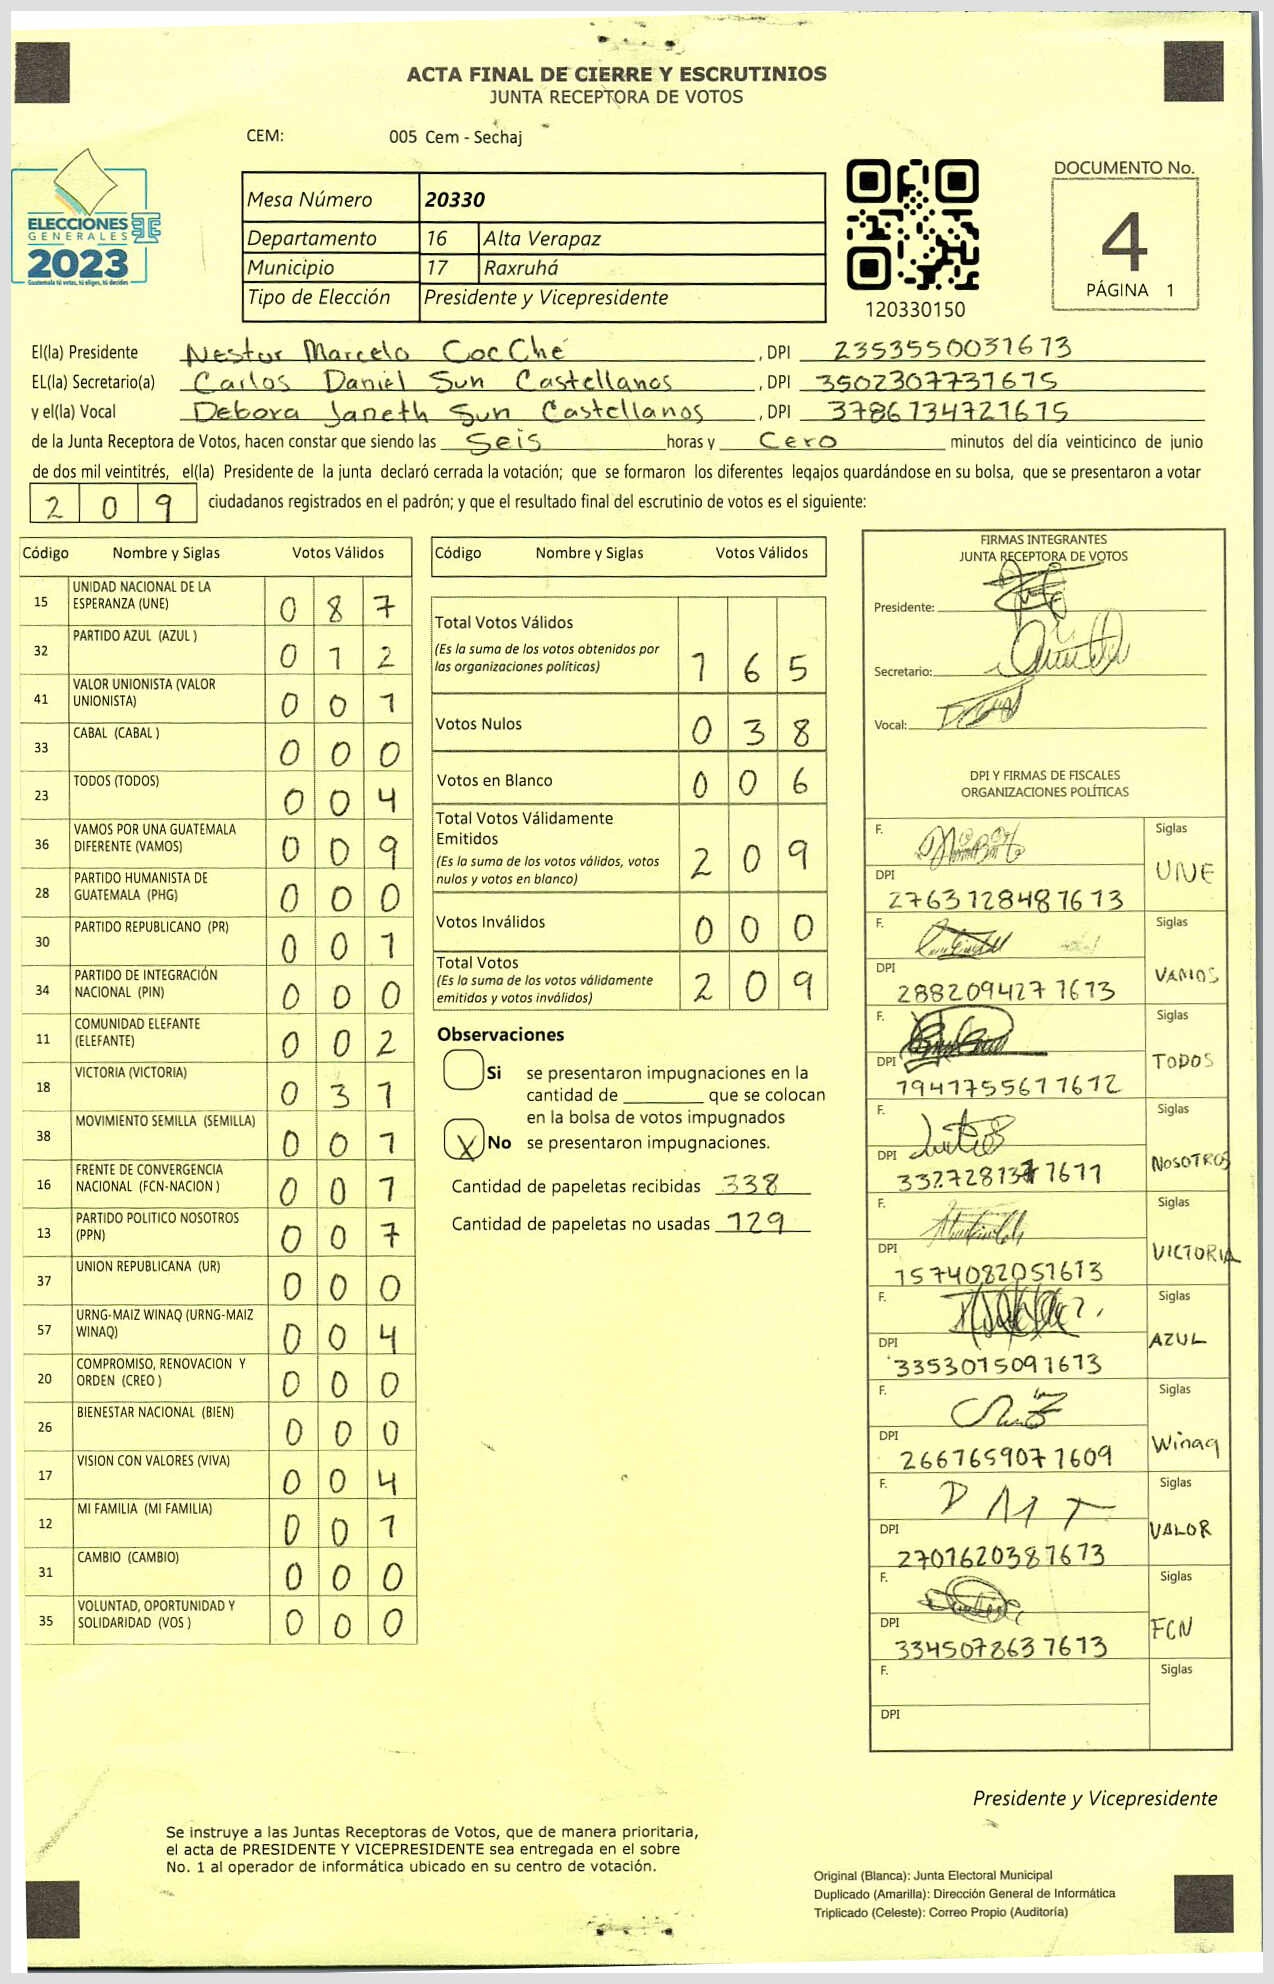 ACTA FINAL DE CIERRE Y ESCRUTINIOS
JUNTA RECEPTORA DE VOTOS
CEM: 005 Cem - Sechaj
ELECCIONES
GENERALES
2023
Guatemala tú votas, tú eliges, tú decides
Mesa Número 20330
Departamento 16 Alta Verapaz
Municipio 17 Raxruhá
Tipo de Elección Presidente y Vicepresidente
120330150
DOCUMENTO No.
4
PÁGINA 1
El(la) Presidente Nestor Marcelo Coc Ché , DPI 2353550031673
EL(la) Secretario(a) Carlos Daniel Sun Castellanos , DPI 3502307731675
y el(la) Vocal Debora Janeth Sun Castellanos , DPI 3786134721615
de la Junta Receptora de Votos, hacen constar que siendo las Seis horas y Cero minutos del día veinticinco de junio
de dos mil veintitrés, el(la) Presidente de la junta declaró cerrada la votación; que se formaron los diferentes legajos guardándose en su bolsa, que se presentaron a votar
209 ciudadanos registrados en el padrón; y que el resultado final del escrutinio de votos es el siguiente:
Código Nombre y Siglas Votos Válidos
15 UNIDAD NACIONAL DE LA ESPERANZA (UNE) 0 8 7
32 PARTIDO AZUL (AZUL ) 0 1 2
41 VALOR UNIONISTA (VALOR UNIONISTA) 0 0 1
33 CABAL (CABAL ) 0 0 0
23 TODOS (TODOS) 0 0 4
36 VAMOS POR UNA GUATEMALA DIFERENTE (VAMOS) 0 0 9
28 PARTIDO HUMANISTA DE GUATEMALA (PHG) 0 0 0
30 PARTIDO REPUBLICANO (PR) 0 0 1
34 PARTIDO DE INTEGRACIÓN NACIONAL (PIN) 0 0 0
11 COMUNIDAD ELEFANTE (ELEFANTE) 0 0 2
18 VICTORIA (VICTORIA) 0 3 1
38 MOVIMIENTO SEMILLA (SEMILLA) 0 0 1
16 FRENTE DE CONVERGENCIA NACIONAL (FCN-NACION ) 0 0 1
13 PARTIDO POLITICO NOSOTROS (PPN) 0 0 7
37 UNION REPUBLICANA (UR) 0 0 0
57 URNG-MAIZ WINAQ (URNG-MAIZ WINAQ) 0 0 4
20 COMPROMISO, RENOVACION Y ORDEN (CREO ) 0 0 0
26 BIENESTAR NACIONAL (BIEN) 0 0 0
17 VISION CON VALORES (VIVA) 0 0 4
12 MI FAMILIA (MI FAMILIA) 0 0 1
31 CAMBIO (CAMBIO) 0 0 0
35 VOLUNTAD, OPORTUNIDAD Y SOLIDARIDAD (VOS ) 0 0 0
Código Nombre y Siglas Votos Válidos
Total Votos Válidos
(Es la suma de los votos obtenidos por
las organizaciones políticas) 1 6 5
Votos Nulos 0 3 8
Votos en Blanco 0 0 6
Total Votos Válidamente
Emitidos
(Es la suma de los votos válidos, votos
nulos y votos en blanco) 2 0 9
Votos Inválidos 0 0 0
Total Votos
(Es la suma de los votos válidamente
emitidos y votos inválidos) 2 0 9
Observaciones
Si se presentaron impugnaciones en la
cantidad de ________ que se colocan
en la bolsa de votos impugnados
X No se presentaron impugnaciones.
Cantidad de papeletas recibidas 338
Cantidad de papeletas no usadas 129
FIRMAS INTEGRANTES
JUNTA RECEPTORA DE VOTOS
Presidente:
Secretario:
Vocal:
DPI Y FIRMAS DE FISCALES
ORGANIZACIONES POLÍTICAS
F. Siglas
UNE
DPI 2763128481613
F. Siglas
VAMOS
DPI 2882094271613
F. Siglas
TODOS
DPI 1941755611612
F. Siglas
NOSOTROS
DPI
F. Siglas
VICTORIA
DPI 1574082051613
F. Siglas
AZUL
DPI 3353015091613
F. Siglas
Winaq
DPI 2661659071609
F. Siglas
VALOR
DPI 2701620381613
F. Siglas
FCN
DPI 3345078631613
F. Siglas
DPI
Presidente y Vicepresidente
Se instruye a las Juntas Receptoras de Votos, que de manera prioritaria,
el acta de PRESIDENTE Y VICEPRESIDENTE sea entregada en el sobre
No. 1 al operador de informática ubicado en su centro de votación.
Original (Blanca): Junta Electoral Municipal
Duplicado (Amarilla): Dirección General de Informática
Triplicado (Celeste): Correo Propio (Auditoría)